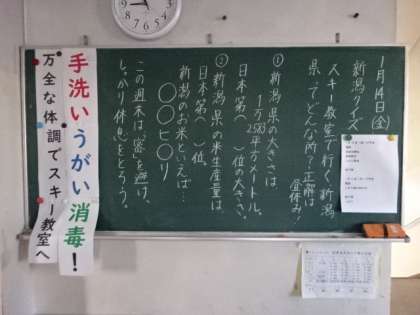 1月14日(金)
新潟クイズ
スキー教室で行く新潟
県ってどんな所?正解は
昼休み。
①新潟県の大きさは
1万2583平方メートル。
日本第( )位の大きさ。
②新潟県の米生産量は
日本第( )位。
新潟のお米といえば…
〇〇ヒ〇リ
この週末は、"密"を避け、
しっかり休息をとろう。
手洗いうがい消毒!
万全な体調でスキー教室へ